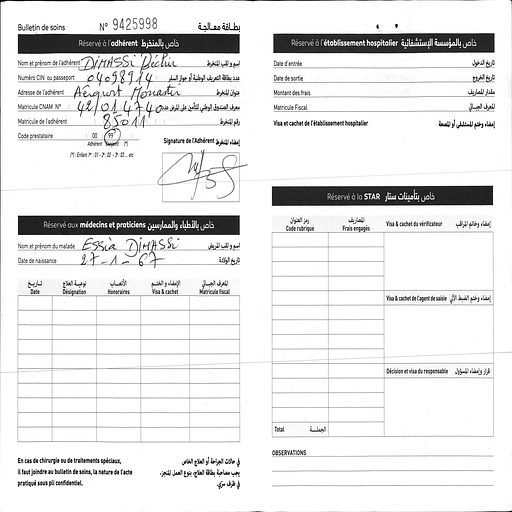 Bulletin de soins N° 9425998 بطاقة معالجة
Réservé à l'adhérent خاص بالمنخرط
Nom et prénom de l'adhérent DIMASSI إسم و لقب المنخرط
Numéro CIN ou passeport 04098914 عدد بطاقة التعريف الوطنية أو جواز السفر
Adresse de l'adhérent Aéroport Monastir عنوان المنخرط
Matricule CNAM N° 42/014740
Matricule de l'adhérent 85011 رقم المنخرط
Code prestataire 00 99
Adhérent Conjoint (*)
(*) : Enfant 1er : 01 - 2ème : 02 - 3ème : 03 ... etc
Signature de l'Adhérent إمضاء المنخرط
Réservé aux médecins et praticiens خاص بالأطباء والممارسين
Nom et prénom du malade Essia DIMASSI إسم و لقب المريض
Date de naissance 27-1-67 تاريخ الولادة
تاريخ نوعية العلاج الأتعاب الإمضاء و الختم المعرف الجبائي
Date Désignation Honoraires Visa & cachet Matricule fiscal
En cas de chirurgie ou de traitements spéciaux,
il faut joindre au bulletin de soins, la nature de l'acte
pratiqué sous pli confidentiel.
في حالات الجراحة أو العلاج الخاص
يجب مصاحبة بطاقة العلاج، بنوع العمل المنجز،
في ظرف سري.
Réservé à l'établissement hospitalier خاص بالمؤسسة الإستشفائية
Date d'entrée تاريخ الدخول
Date de sortie تاريخ الخروج
Montant des frais مقدار المصاريف
Matricule Fiscal المعرف الجبائي
Visa et cachet de l'établissement hospitalier إمضاء وختم المستشفى أو المصحة
Réservé à la STAR خاص بتأمينات ستار
رمز العنوان المصاريف
Code rubrique Frais engagés
Visa & cachet du vérificateur إمضاء وخاتم المراقب
Visa & cachet de l'agent de saisie إمضاء وختم الضبط الآلي
Décision et visa du responsable قرار وإمضاء المسؤول
Total الجملة
OBSERVATIONS